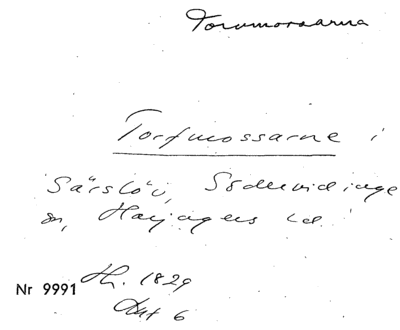 Torvmossarna
Torfmossarne i
Särslöv, Södervidinge
sn, Harjagers hd.
Hh. 1829
Nr 9991
Akt 6